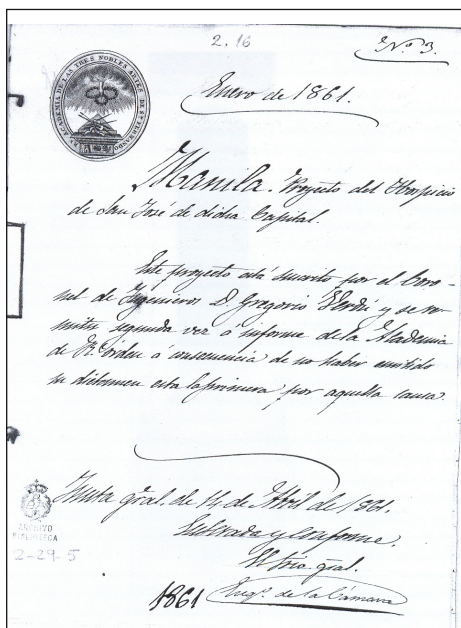 2.16
Nº 3.
R! ACADEMIA DE LAS TRES NOBLES ARTES DE Sn FERNANDO
Enero de 1861.
Manila. Proyecto del Hospicio
de San José de dicha Capital.
Este proyecto está suscrito por el Coro-
nel de Ingenieros D. Gregorio y se re-
mite segunda vez á informe de la Academia
de R. órden á consecuencia de no haber emitido
su dictamen esta la primera por aquella causa.
Junta gral. de 14 de Abril de 1861.
Enterada y conforme.
El Srio. gral.
Eugº. de la Cámara
1861
ARCHIVO
BIBLIOTECA
2-29-5